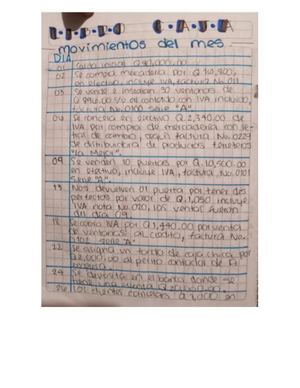 LIBRO CAJA
movimientos del mes
DIA
01 Saldo inicial Q 90,000.00
02 Se compra mercadería por Q
en efectivo, incluye IVA, factura No. 011
03 Se vende e instalan 30 ventanas de
al contado con IVA incluido,
factura No. 0100 serie "A".
06 Se cancela en efectivo Q 2,340.00 de
IVA por compra de mercadería con
de cambio, según factura No. 0229
de distribuidora de productos
"La Mejor".
09 Se venden 10 puertas por Q 10,500.00
en efectivo, incluye IVA, factura No. 0101
serie "A".
13 Nos devuelven 01 puerta por tener des
perfectos por valor de Q 1,050 incluye
IVA nota No. 020, las ventas fueron
del día 09.
Se cobró IVA por Q 1,440.00 por venta
de ventanas al crédito, factura No.
0102 serie "A".
22 Se asigna un fondo de caja chica por
Q 2,000.00 al perito contador de la
24 Se deposita en el banco donde se
una cuenta
26 Los clientes cancelan Q 9,000 en